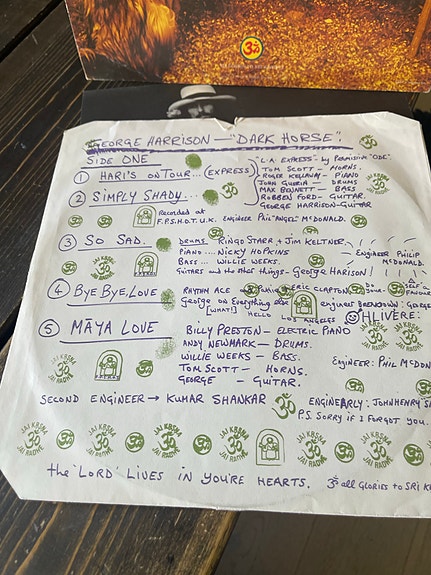 GEORGE HARRISON - "DARK HORSE".
SIDE ONE
① HARI'S ON TOUR... (EXPRESS)
"L.A. EXPRESS" - by Permissive "ODE".
TOM SCOTT - HORNS.
ROGER KELLAWAY - PIANO
JOHN GUERIN - DRUMS
MAX BENNETT - BASS
ROBBEN FORD - GUITAR.
GEORGE HARRISON - GUITAR
② SIMPLY SHADY...
Recorded at
F.P.S.H.O.T. U.K. ENGINEER PHIL "ANGEL" McDONALD.
③ SO SAD.
DRUMS. RINGO STARR + JIM KELTNER
PIANO .... NICKY HOPKINS
BASS... WILLIE WEEKS.
GUITARS and the other things - GEORGE HARISON! ! ! !
ENGINEER PHILIP
McDONALD.
④ BYE BYE, LOVE
RHYTHM ACE ERIC CLAPTON
George on Everything else
[WHAT!] HELLO LOS ANGELES
engineer BRENDOWN: GEORGE
OHLIVERE:
⑤ MĀYA LOVE
BILLY PRESTON - ELECTRIC PIANO
ANDY NEWMARK - DRUMS.
WILLIE WEEKS - BASS.
TOM SCOTT - HORNS.
GEORGE - GUITAR.
ENGINEER: PHIL McDON
SECOND ENGINEER → KUMAR SHANKAR ॐ
ENGINEARLY: JOHN HENRY S
P.S. SORRY IF I FORGOT YOU.
JAI KRSNA ॐ JAI RADHE
the 'LORD' LIVES IN YOU'RE HEARTS.
ॐ all GLORIES to SRI K